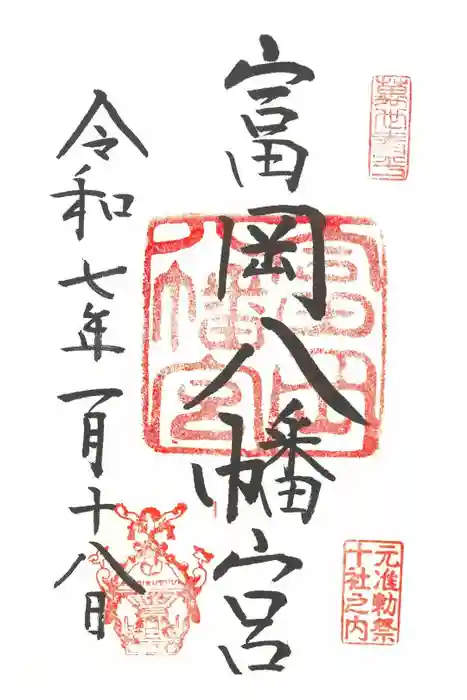 富岡八幡宮
令和七年一月十八日
富岡八幡宮
元准勅祭
十社之内